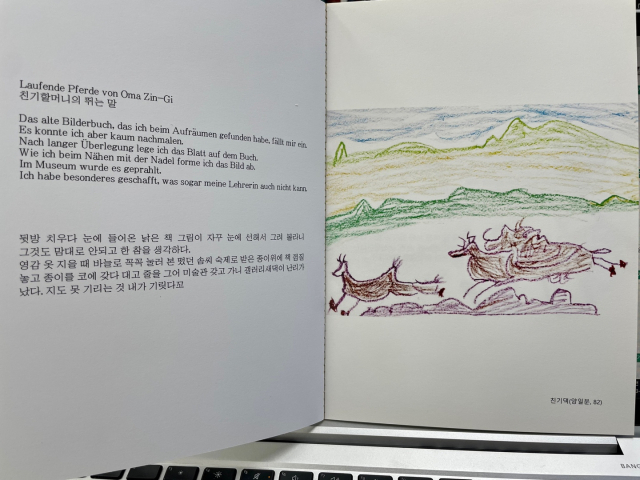 Laufende Pferde von Oma Zin-Gi
친기할머니의 뛰는 말
Das alte Bilderbuch, das ich beim Aufräumen gefunden habe, fällt mir ein.
Es konnte ich aber kaum nachmalen.
Nach langer Überlegung lege ich das Blatt auf dem Buch.
Wie ich beim Nähen mit der Nadel forme ich das Bild ab.
Im Museum wurde es geprahlt.
Ich habe besonderes geschafft, was sogar meine Lehrerin auch nicht kann.
뒷방 치우다 눈에 들어온 낡은 책 그림이 자꾸 눈에 선해서 그려 볼라니
그것도 맘대로 안되고 한 참을 생각하다.
영감 옷 지을 때 바늘로 꼭꼭 눌러 본 떴던 솜씨 숙제로 받은 종이위에 책
놓고 종이를 코에 갖다 대고 줄을 그어 미술관 갖고 가니 갤러리새댁이 난리가
났다. 지도 못 기리는 것 내가 기릿다꼬
친기댁(양일문, 82)
BANG